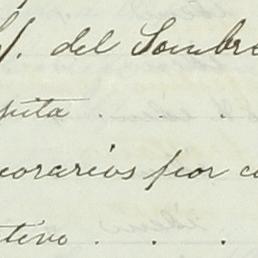 del Sombre
puta . . .
norarios por c
tivo . . .